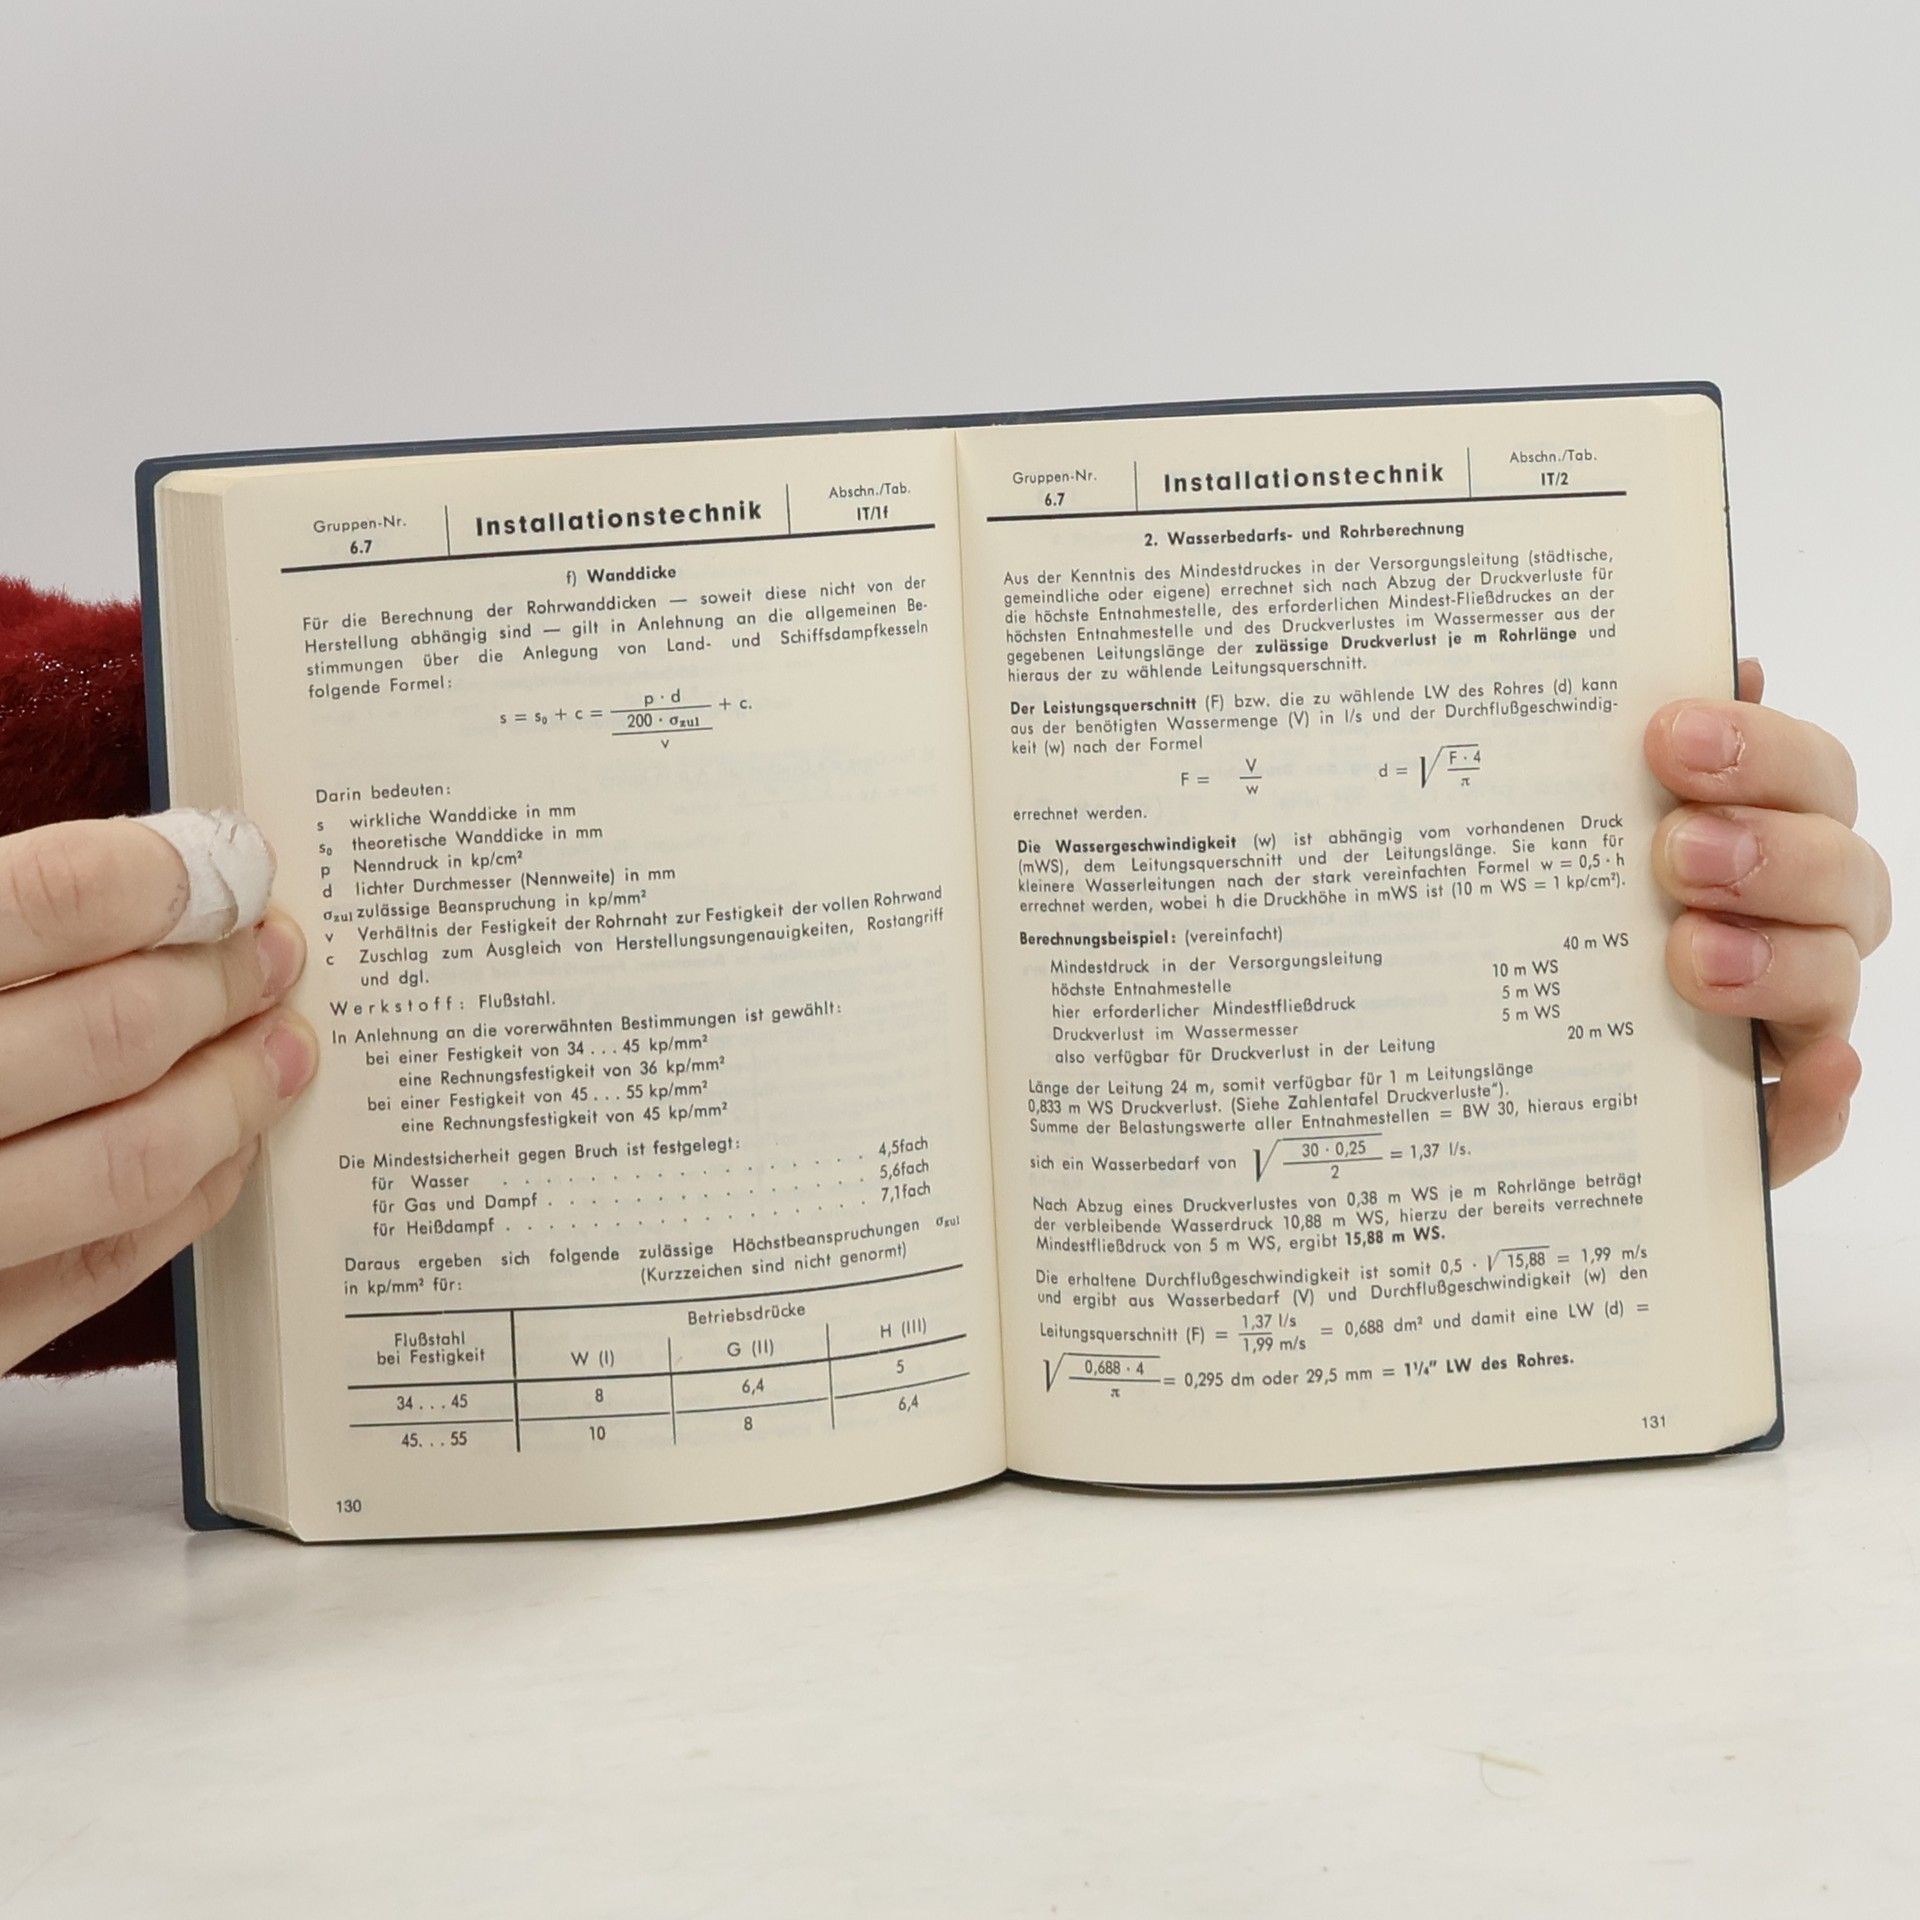 Gruppen-Nr.
6.7
Installationstechnik
Abschn./Tab.
IT/1f
f) Wanddicke
Für die Berechnung der Rohrwanddicken — soweit diese nicht von der
Herstellung abhängig sind — gilt in Anlehnung an die allgemeinen Be-
stimmungen über die Anlegung von Land- und Schiffsdampfkesseln
folgende Formel:
s = s₀ + c = p · d / (200 · σzul / v) + c.
Darin bedeuten:
s wirkliche Wanddicke in mm
s₀ theoretische Wanddicke in mm
p Nenndruck in kp/cm²
d lichter Durchmesser (Nennweite) in mm
σzul zulässige Beanspruchung in kp/mm²
v Verhältnis der Festigkeit der Rohrnaht zur Festigkeit der vollen Rohrwand
c Zuschlag zum Ausgleich von Herstellungsungenauigkeiten, Rostangriff
und dgl.
Werkstoff: Flußstahl.
In Anlehnung an die vorerwähnten Bestimmungen ist gewählt:
bei einer Festigkeit von 34 . . . 45 kp/mm²
eine Rechnungsfestigkeit von 36 kp/mm²
bei einer Festigkeit von 45 . . . 55 kp/mm²
eine Rechnungsfestigkeit von 45 kp/mm²
Die Mindestsicherheit gegen Bruch ist festgelegt:
für Wasser . . . . . . . . . . . . . 4,5fach
für Gas und Dampf . . . . . . . . . . . . 5,6fach
für Heißdampf . . . . . . . . . . . . . 7,1fach
Daraus ergeben sich folgende zulässige Höchstbeanspruchungen σzul
in kp/mm² für: (Kurzzeichen sind nicht genormt)
Flußstahl
bei Festigkeit
Betriebsdrücke
W (I) G (II) H (III)
34 . . . 45 8 6,4 5
45. . . 55 10 8 6,4
130
Gruppen-Nr.
6.7
Installationstechnik
Abschn./Tab.
IT/2
2. Wasserbedarfs- und Rohrberechnung
Aus der Kenntnis des Mindestdruckes in der Versorgungsleitung (städtische,
gemeindliche oder eigene) errechnet sich nach Abzug der Druckverluste für
die höchste Entnahmestelle, des erforderlichen Mindest-Fließdruckes an der
höchsten Entnahmestelle und des Druckverlustes im Wassermesser aus der
gegebenen Leitungslänge der zulässige Druckverlust je m Rohrlänge und
hieraus der zu wählende Leitungsquerschnitt.
Der Leistungsquerschnitt (F) bzw. die zu wählende LW des Rohres (d) kann
aus der benötigten Wassermenge (V) in l/s und der Durchflußgeschwindig-
keit (w) nach der Formel
F = V / w d = √(F · 4 / π)
errechnet werden.
Die Wassergeschwindigkeit (w) ist abhängig vom vorhandenen Druck
(mWS), dem Leitungsquerschnitt und der Leitungslänge. Sie kann für
kleinere Wasserleitungen nach der stark vereinfachten Formel w = 0,5 · h
errechnet werden, wobei h die Druckhöhe in mWS ist (10 m WS = 1 kp/cm²).
Berechnungsbeispiel: (vereinfacht)
Mindestdruck in der Versorgungsleitung 40 m WS
höchste Entnahmestelle 10 m WS
hier erforderlicher Mindestfließdruck 5 m WS
Druckverlust im Wassermesser 5 m WS
also verfügbar für Druckverlust in der Leitung 20 m WS
Länge der Leitung 24 m, somit verfügbar für 1 m Leitungslänge
0,833 m WS Druckverlust. (Siehe Zahlentafel Druckverluste“).
Summe der Belastungswerte aller Entnahmestellen = BW 30, hieraus ergibt
sich ein Wasserbedarf von √(30 · 0,25 / 2) = 1,37 l/s.
Nach Abzug eines Druckverlustes von 0,38 m WS je m Rohrlänge beträgt
der verbleibende Wasserdruck 10,88 m WS, hierzu der bereits verrechnete
Mindestfließdruck von 5 m WS, ergibt 15,88 m WS.
Die erhaltene Durchflußgeschwindigkeit ist somit 0,5 · √15,88 = 1,99 m/s
und ergibt aus Wasserbedarf (V) und Durchflußgeschwindigkeit (w) den
Leitungsquerschnitt (F) = 1,37 l/s / 1,99 m/s = 0,688 dm² und damit eine LW (d) =
√(0,688 · 4 / π) = 0,295 dm oder 29,5 mm = 1¹/₄″ LW des Rohres.
131